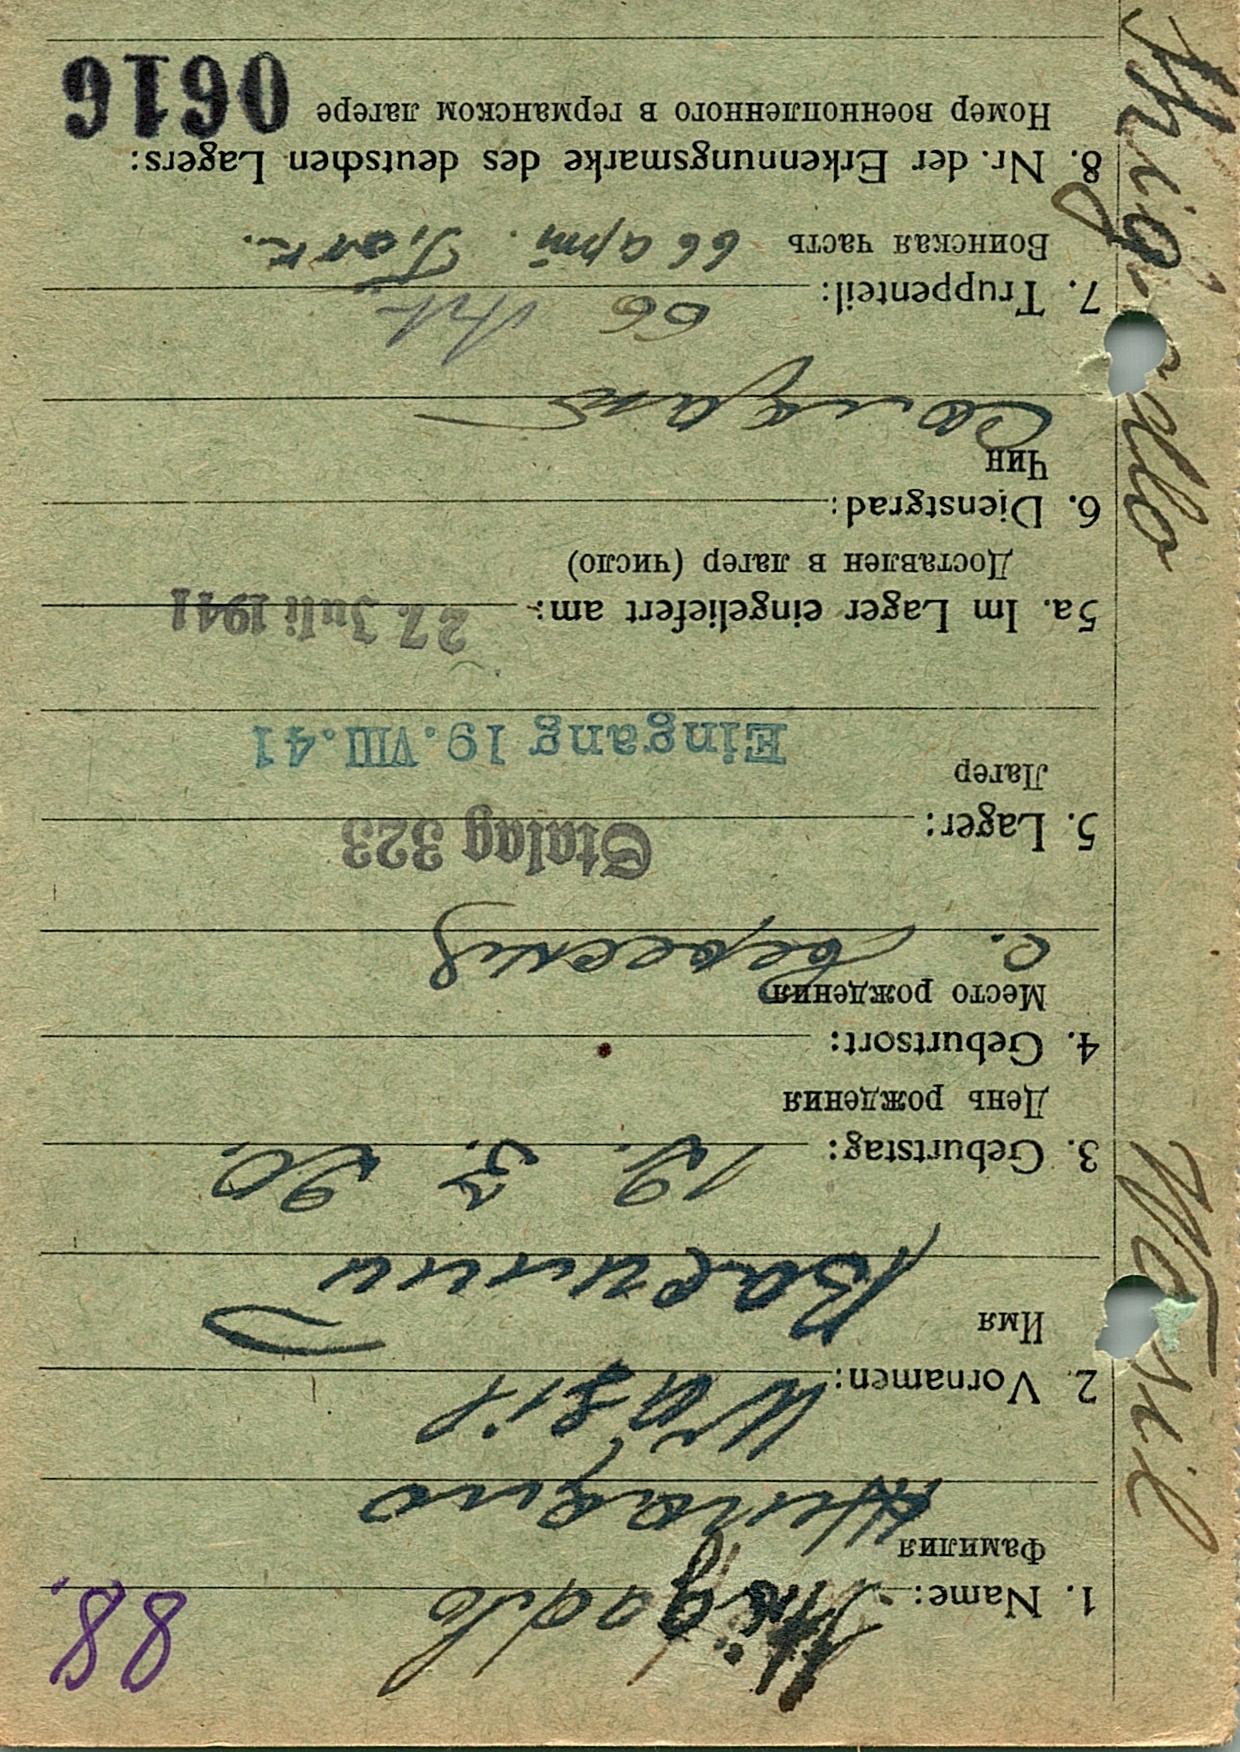 88.
1. Name:
Фамилия
2. Vornamen: Wasil
Имя Василий
3. Geburtstag: 12. 3. 20.
День рождения
4. Geburtsort:
Место рождения
с.
5. Lager: Stalag 323
Лагер
Eingang 19. VIII. 41
5a. Im Lager eingeliefert am: 27. Juli 1941
Доставлен в лагер (число)
6. Dienstgrad:
Чин
солдат
7. Truppenteil: 66 Art.
Воинская часть 66 арт.
8. Nr. der Erkennungsmarke des deutschen Lagers:
Номер военнопленного в германском лагере 0616
Wasil